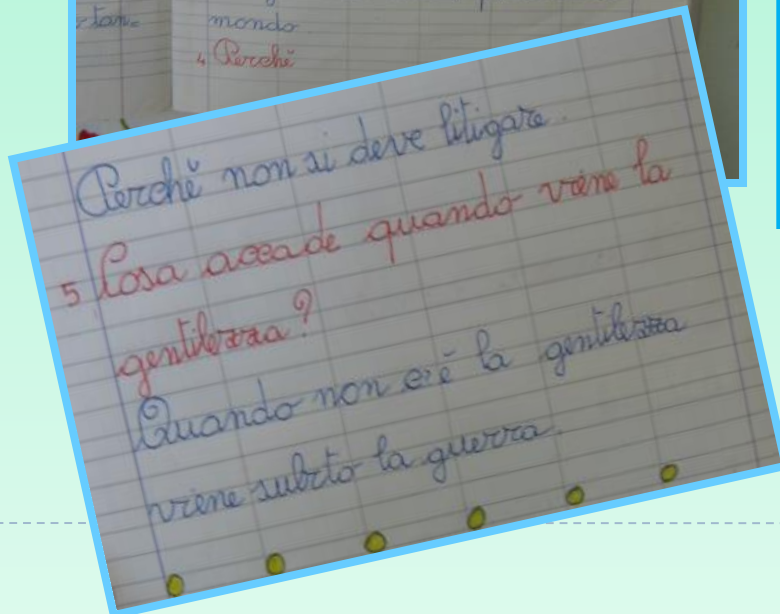 tan=
mondo
4 Perché
Perché non si deve litigare.
5 Cosa accade quando viene la
gentilezza?
Quando non c'è la gentilezza
viene subito la guerra.